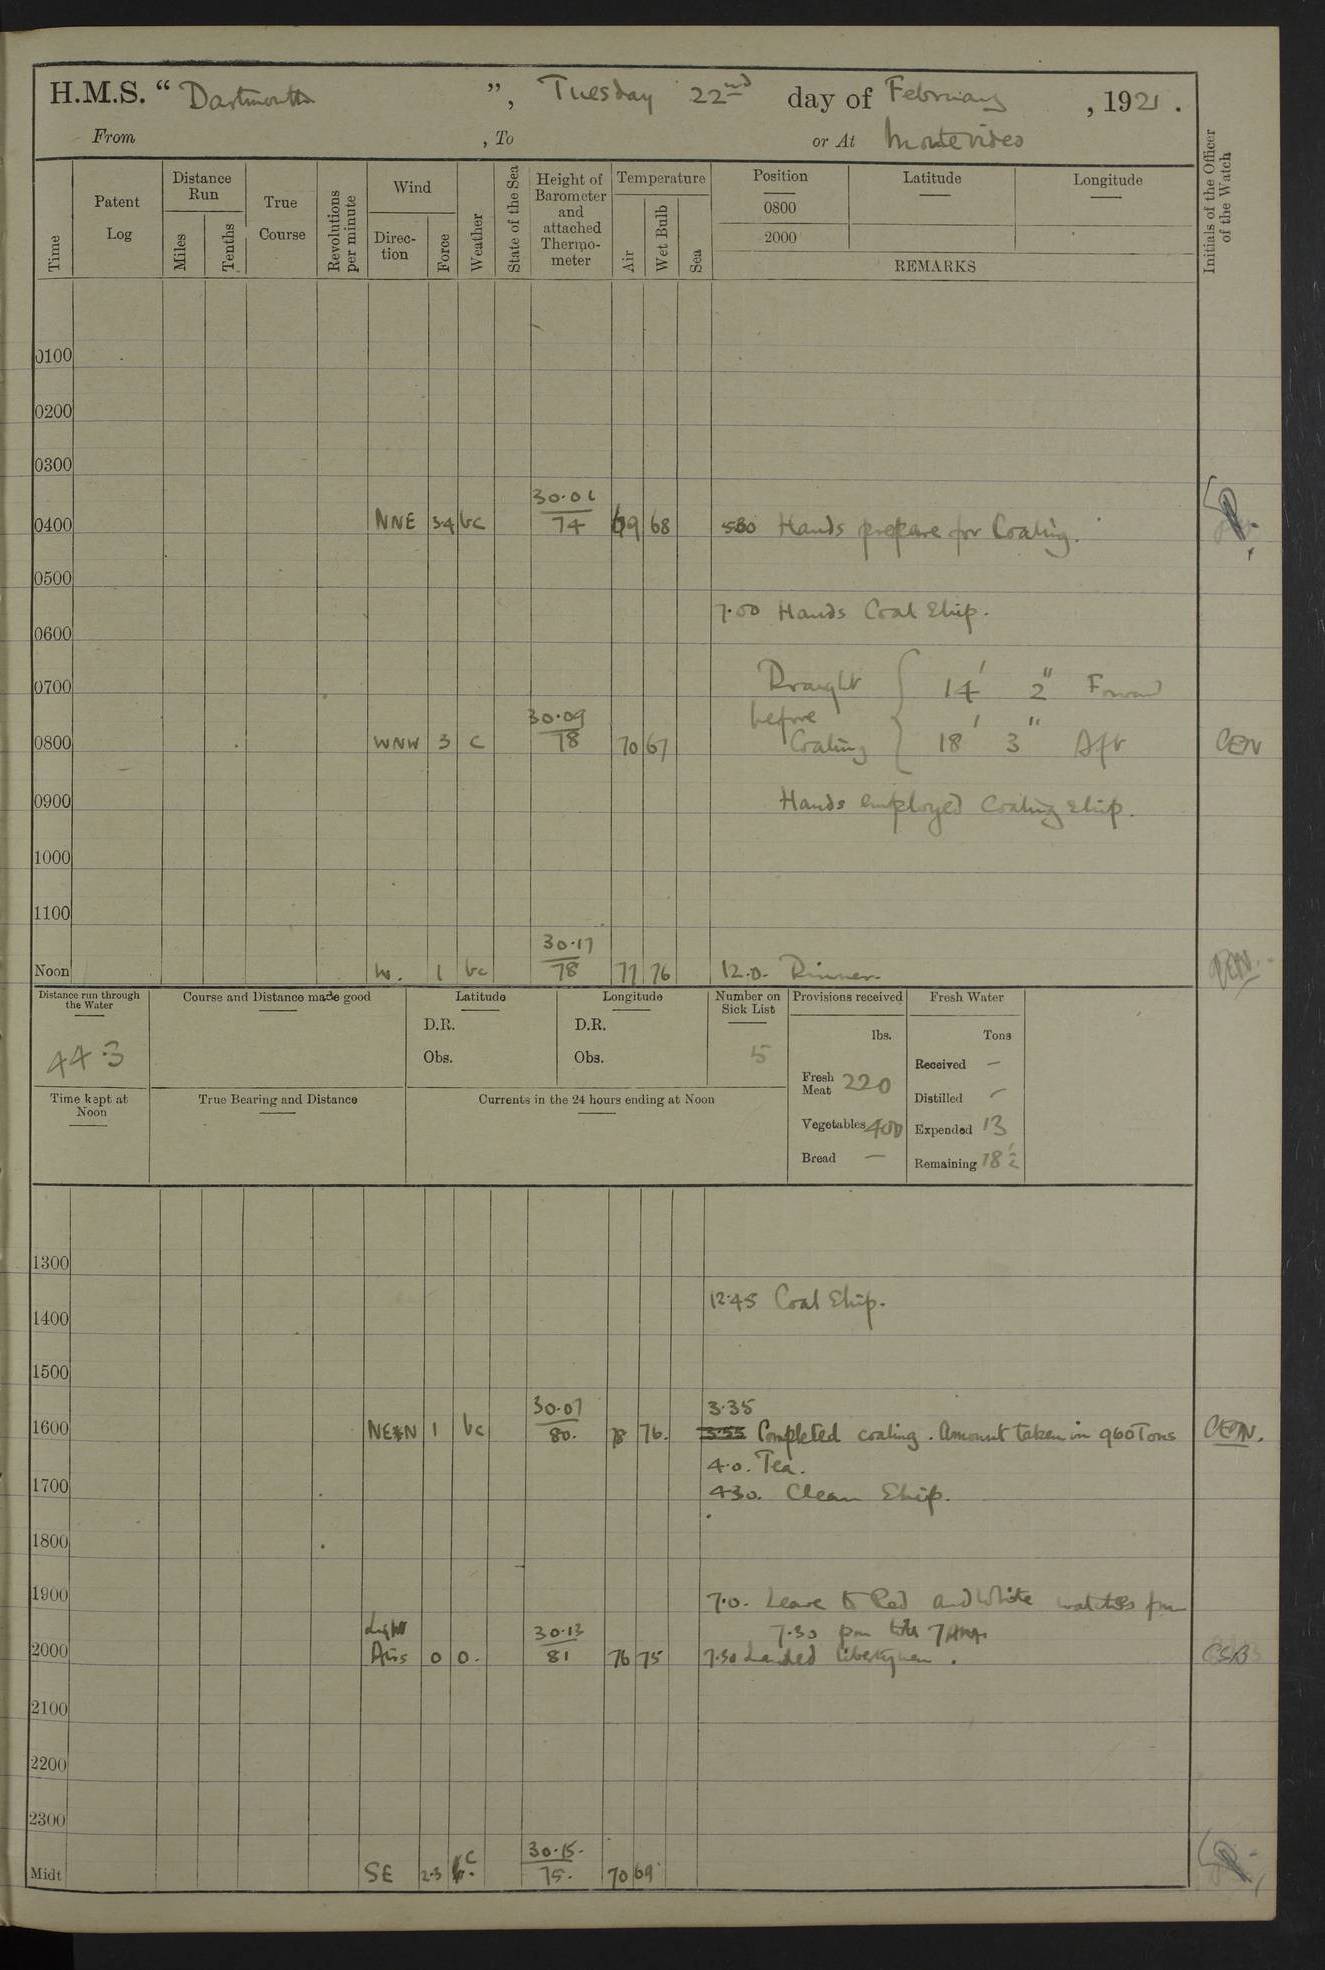 H.M.S. “ Dartmouth ”, Tuesday 22nd day of February , 1921 .
From , To or At Montevideo
Time
Patent Log
Distance Run
Miles
Tenths
True Course
Revolutions per minute
Wind
Direc-tion
Force
Weather
State of the Sea
Height of Barometer and attached Thermo-meter
Temperature
Air
Wet Bulb
Sea
Position
0800
2000
Latitude
Longitude
REMARKS
Initials of the Officer of the Watch
0100
0200
0300
0400 NNE 3-4 bc 30.01 74 69 68 530 Hands prepare for Coaling.
0500
7.00 Hands Coal Ship.
0600
0700 Draught 14' 2" Forward
before
0800 WNW 3 c 30.09 78 70 67 Coaling 18' 3" Aft CEN
0900 Hands employed Coaling Ship.
1000
1100
Noon W. 1 bc 30.17 78 77 76 12.0. Dinner.
Distance run through the Water
44.3
Course and Distance made good
Latitude
D.R.
Obs.
Longitude
D.R.
Obs.
Number on Sick List
5
Provisions received
lbs.
Fresh Meat 220
Vegetables 400
Bread —
Fresh Water
Tons
Received —
Distilled —
Expended 13
Remaining 182
Time kept at Noon
True Bearing and Distance
Currents in the 24 hours ending at Noon
1300
12.45 Coal Ship.
1400
1500
3.35
1600 NExN 1 bc 30.07 80. 78 76. 3.55 Completed coaling. Amount taken in 960 Tons
4.0. Tea.
1700 430. Clean Ship.
1800
1900 7.0. Leave to Red and White watches from
7.30 pm till 7 AM.
2000 Light Airs 0 0. 30.13 81 76 75 7.30 Landed libertymen.
2100
2200
2300
Midt SE 2.3 bc. 30.15. 75. 70 69